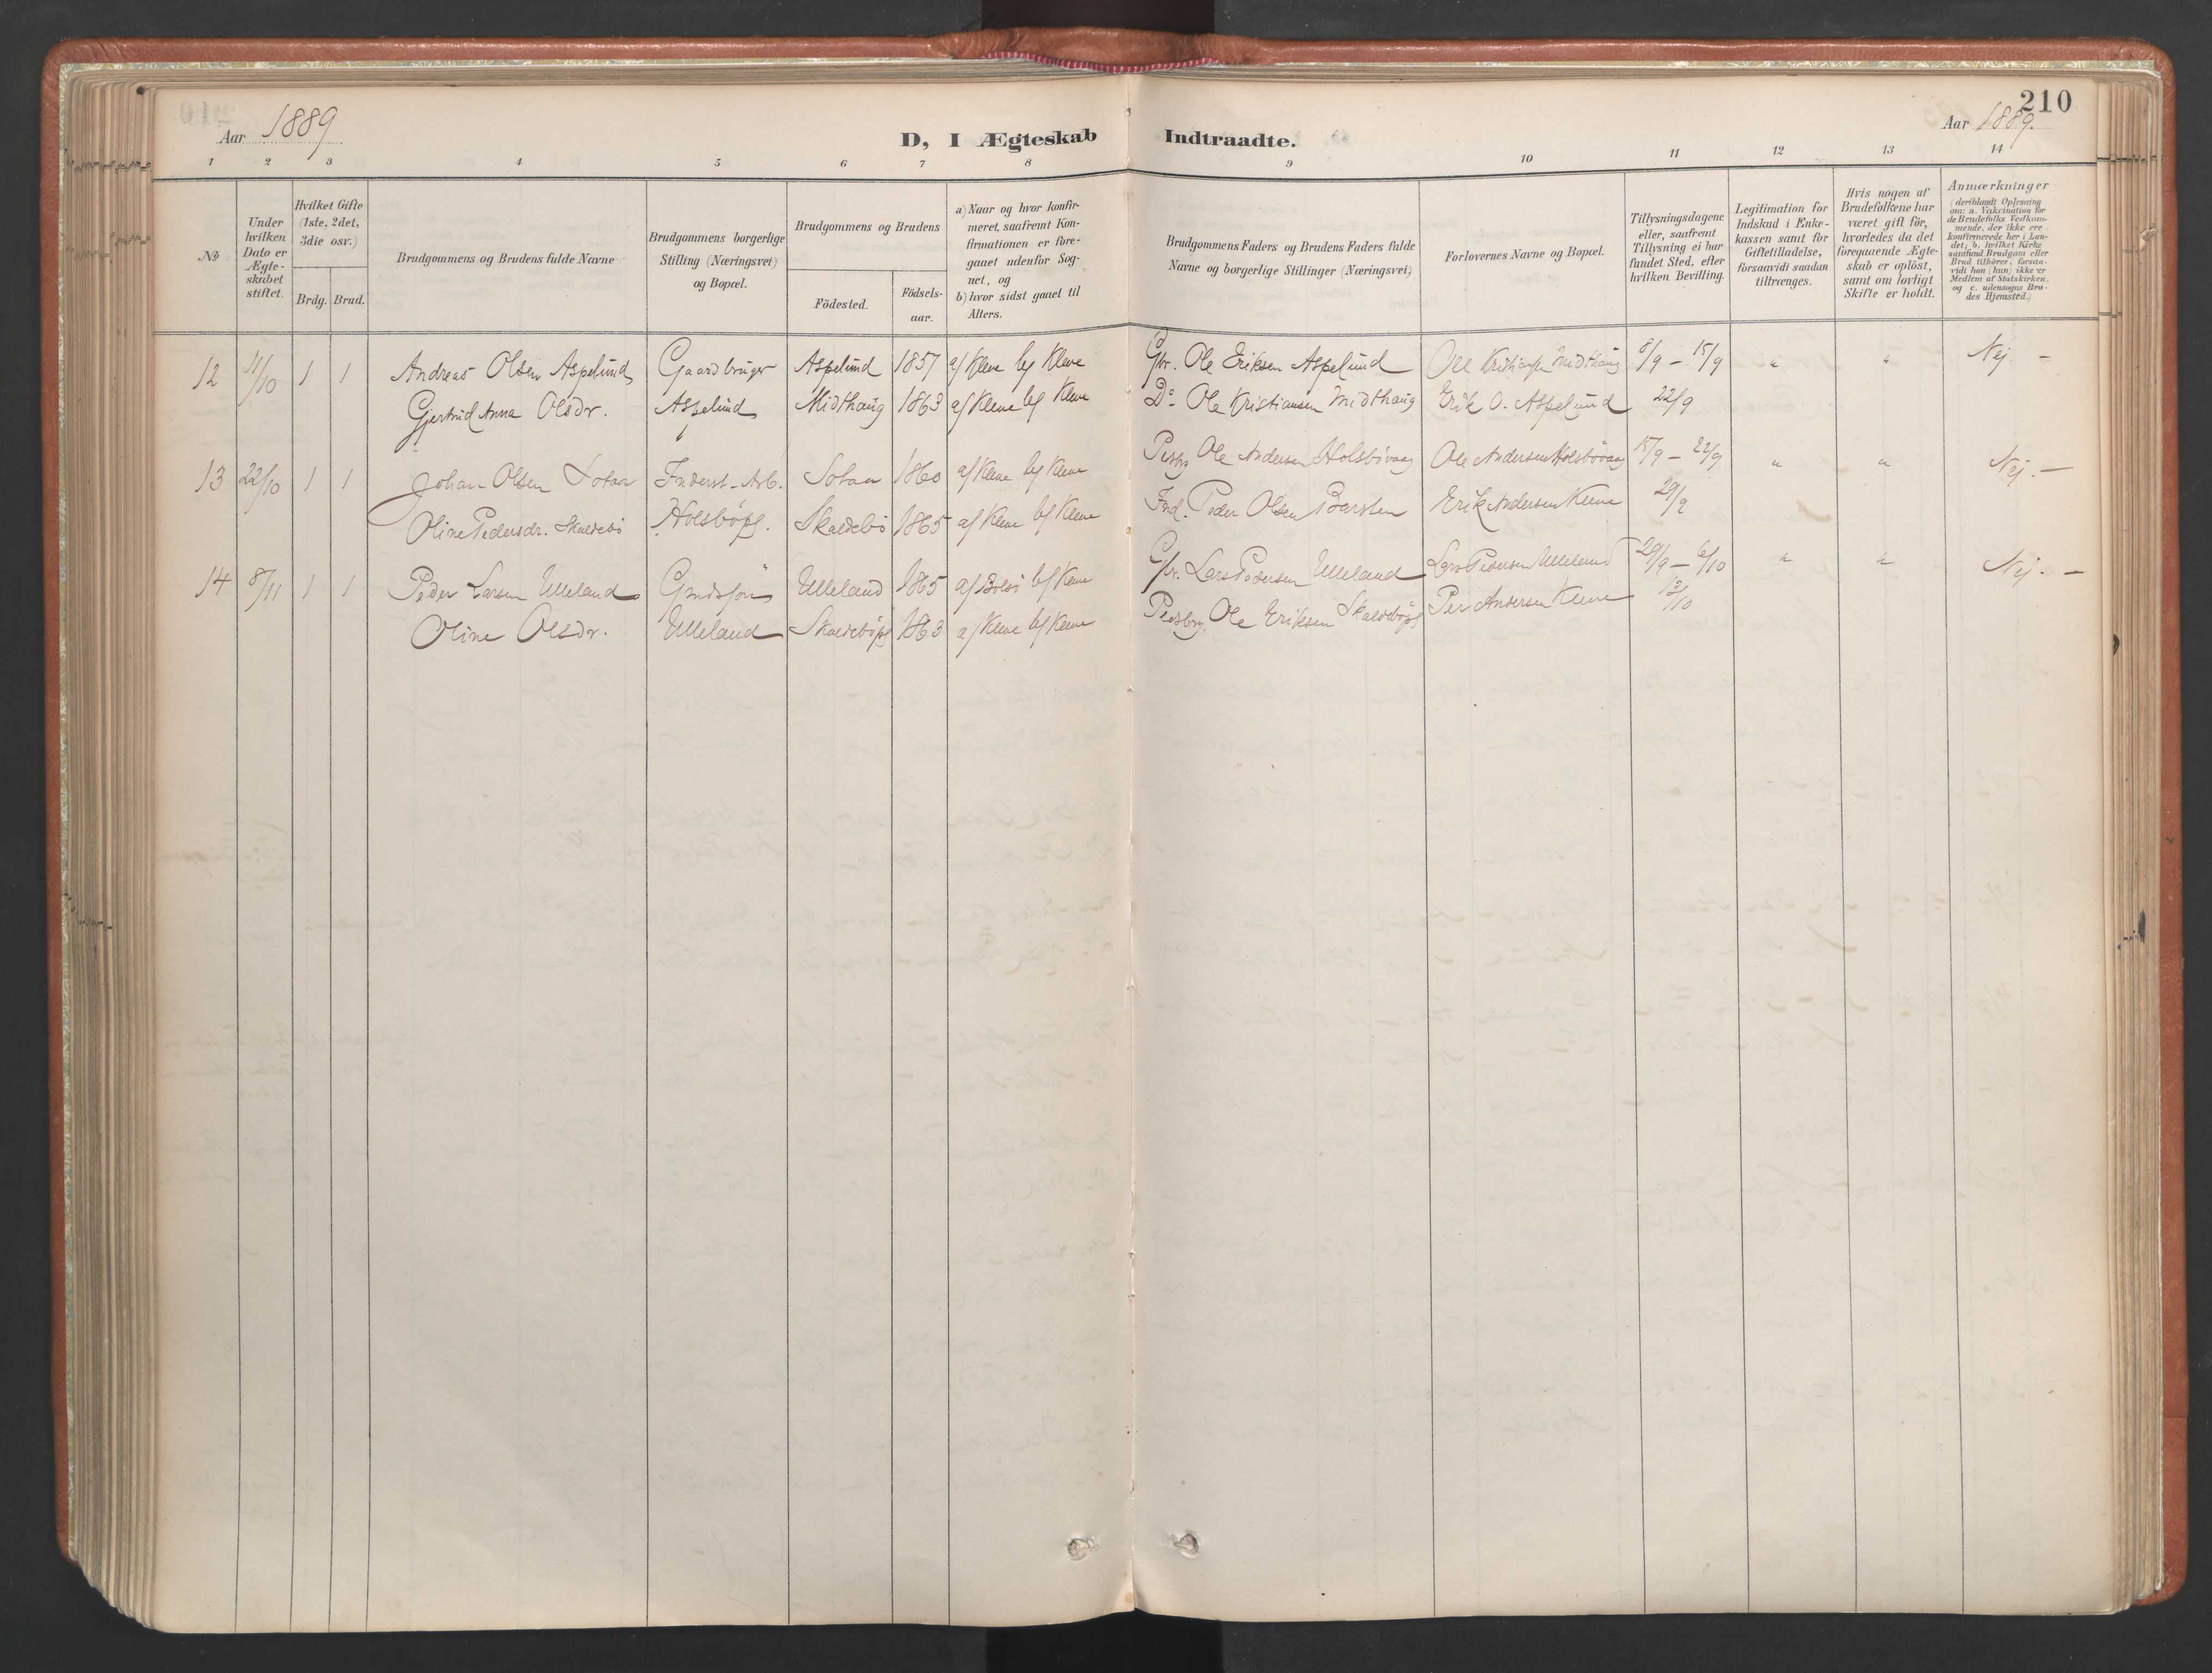 210
Aar 1889
D, I Ægteskab Indtraadte.
Aar 1889.
1 2 3 4 5 6 7 8 9 10 11 12 13 14
No
Under hvilken Dato er Ægte-skabet stiftet.
Hvilket Gifte (1ste, 2det, 3die osv.)
Brdg. Brud.
Brudgommens og Brudens fulde Navne
Brudgommens borgerlige Stilling (Næringsvei) og Bopæl.
Brudgommens og Brudens
Födested.
Födsels-aar.
a) Naar og hvor konfir-meret, saafremt Kon-firmationen er fore-gaaet udenfor Sog-net, og
b) hvor sidst gaaet til Alters.
Brudgommens Faders og Brudens Faders fulde Navne og borgerlige Stillinger (Næringsvei)
Forlovernes Navne og Bopæl.
Tillysningsdagene eller, saafremt Tillysning ei har fundet Sted, efter hvilken Bevilling.
Legitimation for Indskud i Enke-kassen samt for Giftetilladelse, forsaavidt saadan tiltrænges.
Hvis nogen af Brudefolkene har været gift för, hvorledes da det foregaaende Ægte-skab er oplöst, samt om lovligt Skifte er holdt.
Anmærkninger (deriblandt Oplysning om: a. Vakcination for de Brudefolks Vedkom-mende, der ikke ere konfirmerede her i Lan-det; b. hvilket Kirke samfund Brudgom eller Brud tilhörer, forsaa-vidt han (hun) ikke er Medlem af Statskirken, og c. udensogns Bru-des Hjemsted.)
12 11/10 1 1 Andreas Olsen Aspelund Gaardbruger Aspelund 1857 a/ Kleve b/ Kleve Gbr. Ole Eriksen Aspelund Ole Midthaug 8/9 – 15/9 " " Nej. –
Gjertrud Anna Olsdr. Aspelund Midthaug 1863 a/ Kleve b/ Kleve Do Ole Kristiansen Midthaug Erik O. Aspelund 22/9
13 22/10 1 1 Johan Olsen Sotaa Inderst-Arb. Sotaa 1860 a/ Kleve b/ Kleve Ole Andersen Holsbövaag Ole Andersen Holsbövaag 15/9 – 22/9 " " Nej. –
Oline Pedersdr. Skaldebö Holsböpl. Skaldebö 1865 a/ Kleve b/ Kleve Ind. Peder Olsen Barsten Erik Andersen Kleve 29/9
14 8/11 1 1 Peder Larsen Ulleland Grndsjön Ulleland 1865 a/ Bolsö b/ Kleve Gbr. Lars Pedersen Ulleland Lars Pedersen Ulleland 29/9 – 6/10 " " Nej. –
Oline Olsdr. Ulleland Skaldeböpl 1863 a/ Kleve b/ Kleve Ole Eriksen Skaldeböpl Per Andersen Kleve 13/10